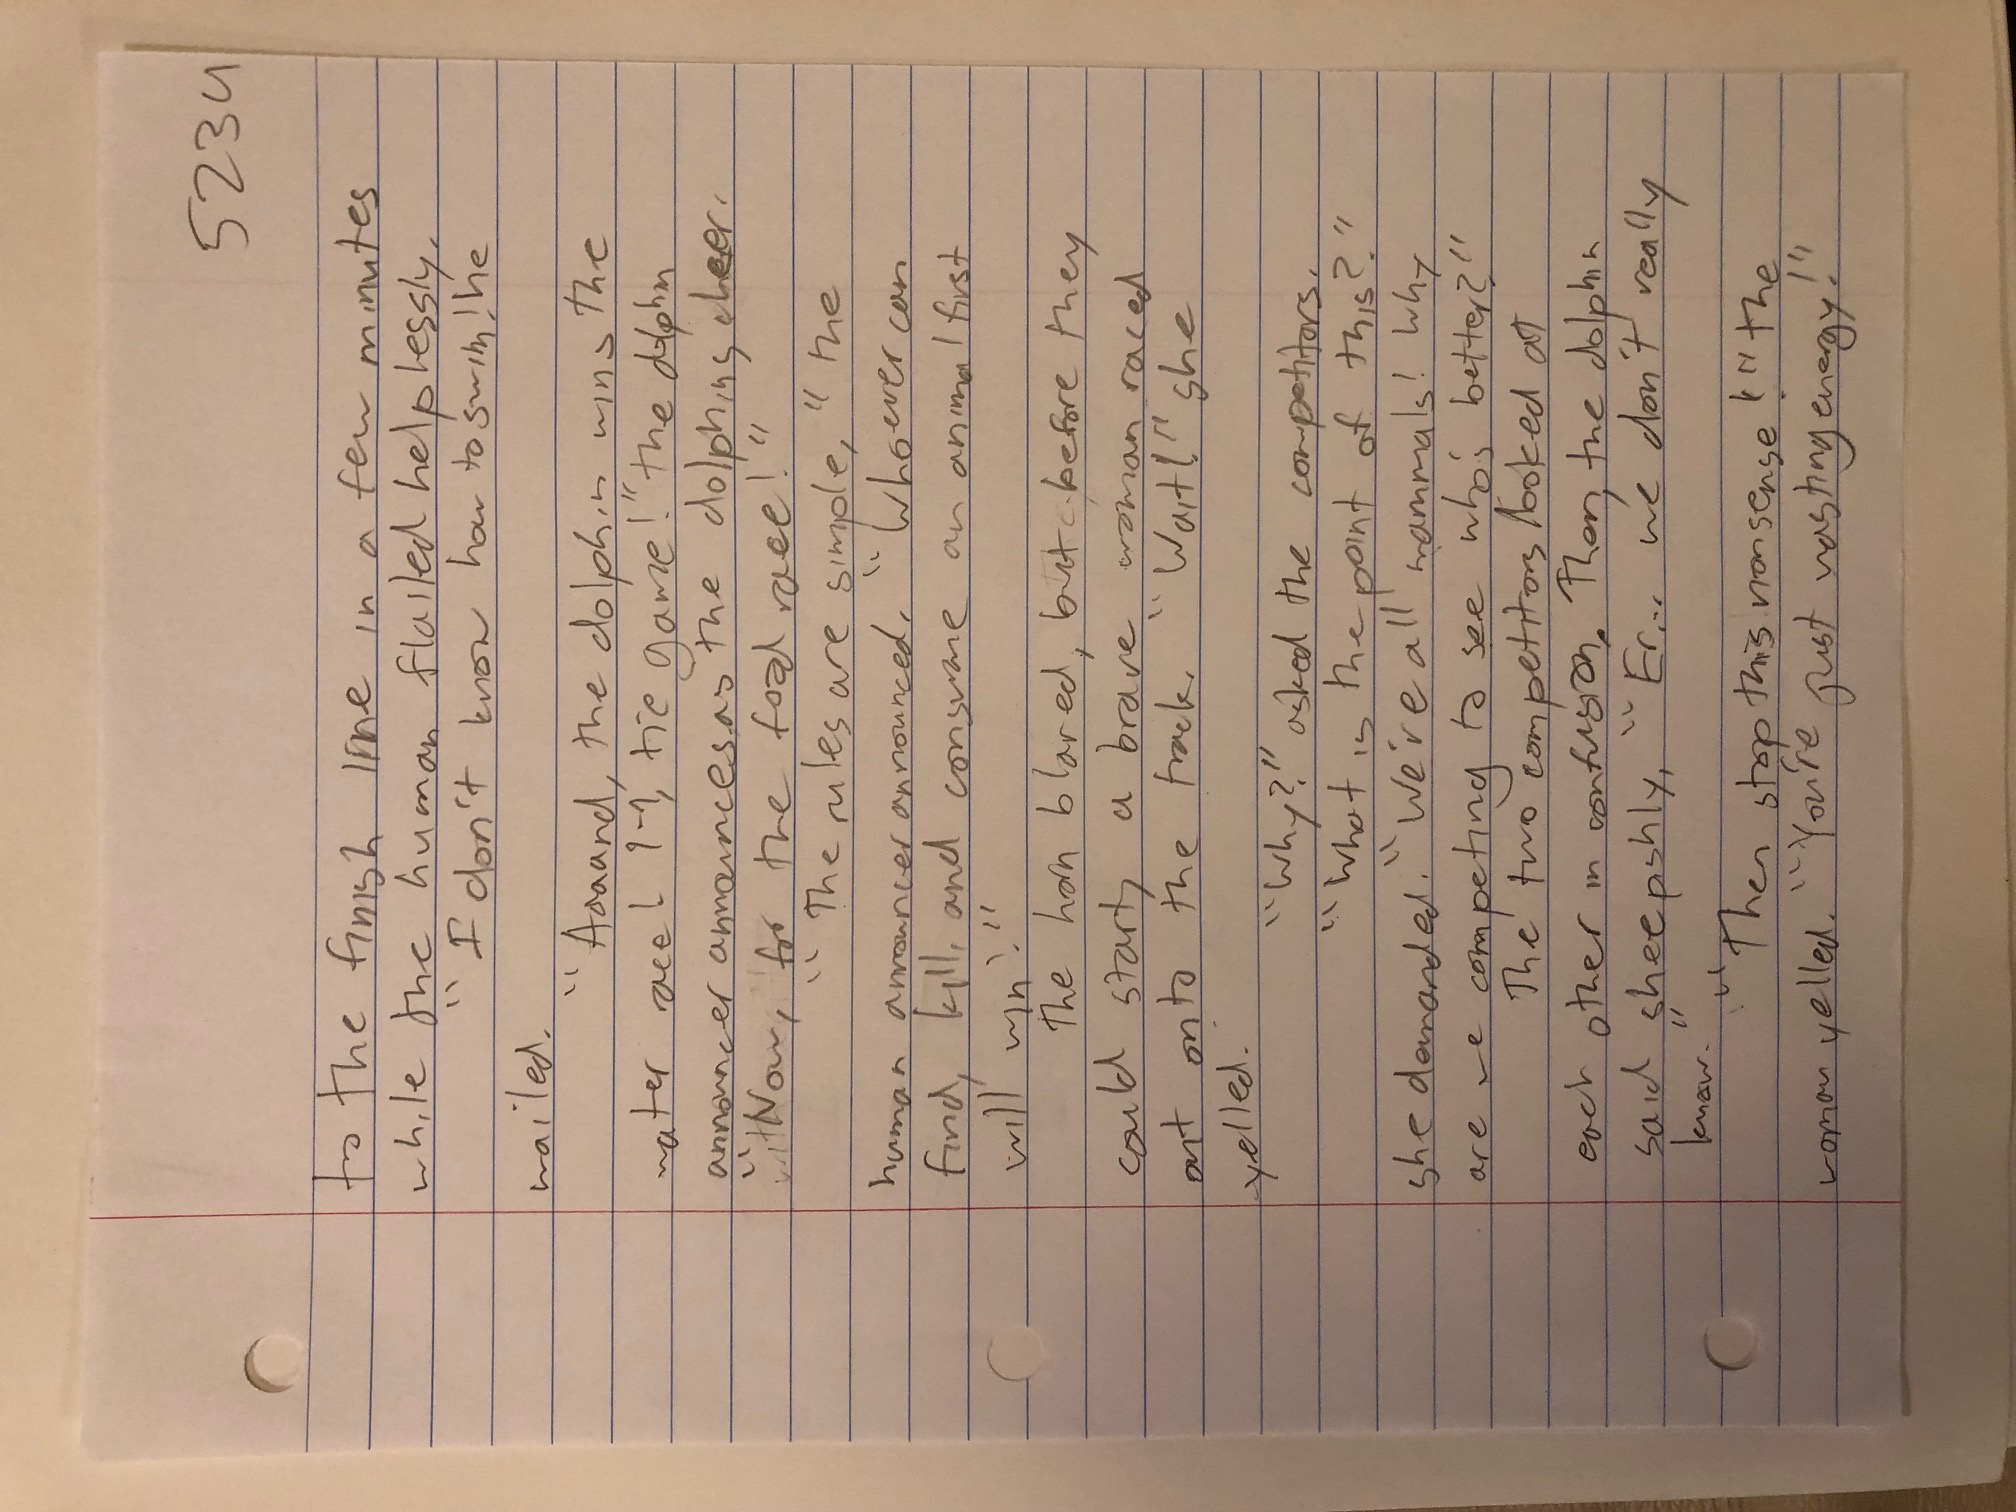 5234
to the finish line in a few minutes
while the human flailed helplessly.
"I don't know how to swim! he
wailed.
"Aaaand, the dolphin wins the
water race! 1-1, tie game!" the dolphin
announcer announces as the dolphins cheer.
"Now, for the food race!"
"The rules are simple," the
human announcer announced. "Whoever can
find, kill, and consume an animal first
will win!"
The horn blared, but before they
could start, a brave woman raced
out onto the track. "Wait!" she
yelled.
"Why?" asked the competitors.
"What is the point of this?"
she demanded. "We're all mammals! Why
are we competing to see who's better?"
The two competitors looked at
each other in confusion. Then, the dolphin
said sheepishly, "Er... we don't really
know."
"Then stop this nonsense!" the
woman yelled. "You're just wasting energy!"